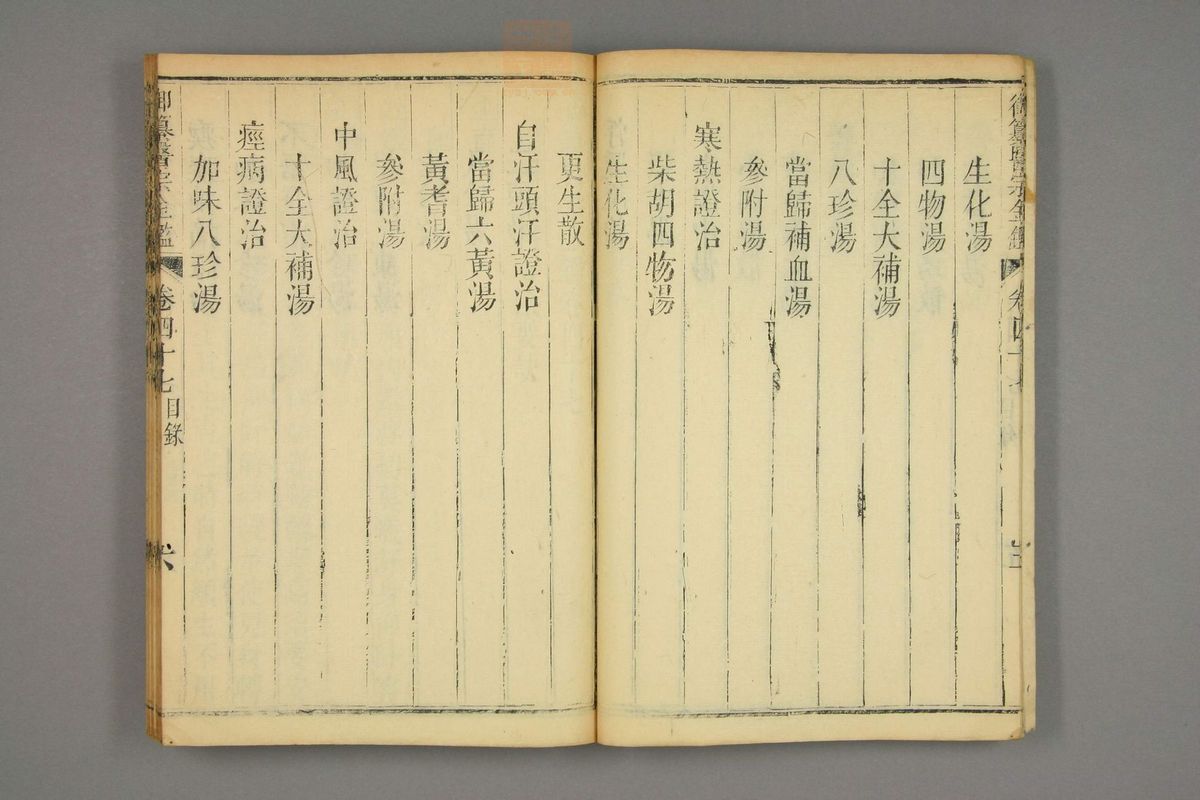 御纂醫宗金鑑 卷四十七
生化湯
四物湯
十全大補湯
八珍湯
當歸補血湯
參附湯
寒熱證治
柴胡四物湯
生化湯
更生散
自汗頭汗證治
當歸六黃湯
黃耆湯
參附湯
中風證治
十全大補湯
痙病證治
加味八珍湯
御纂醫宗金鑑 卷四十七 目錄 六